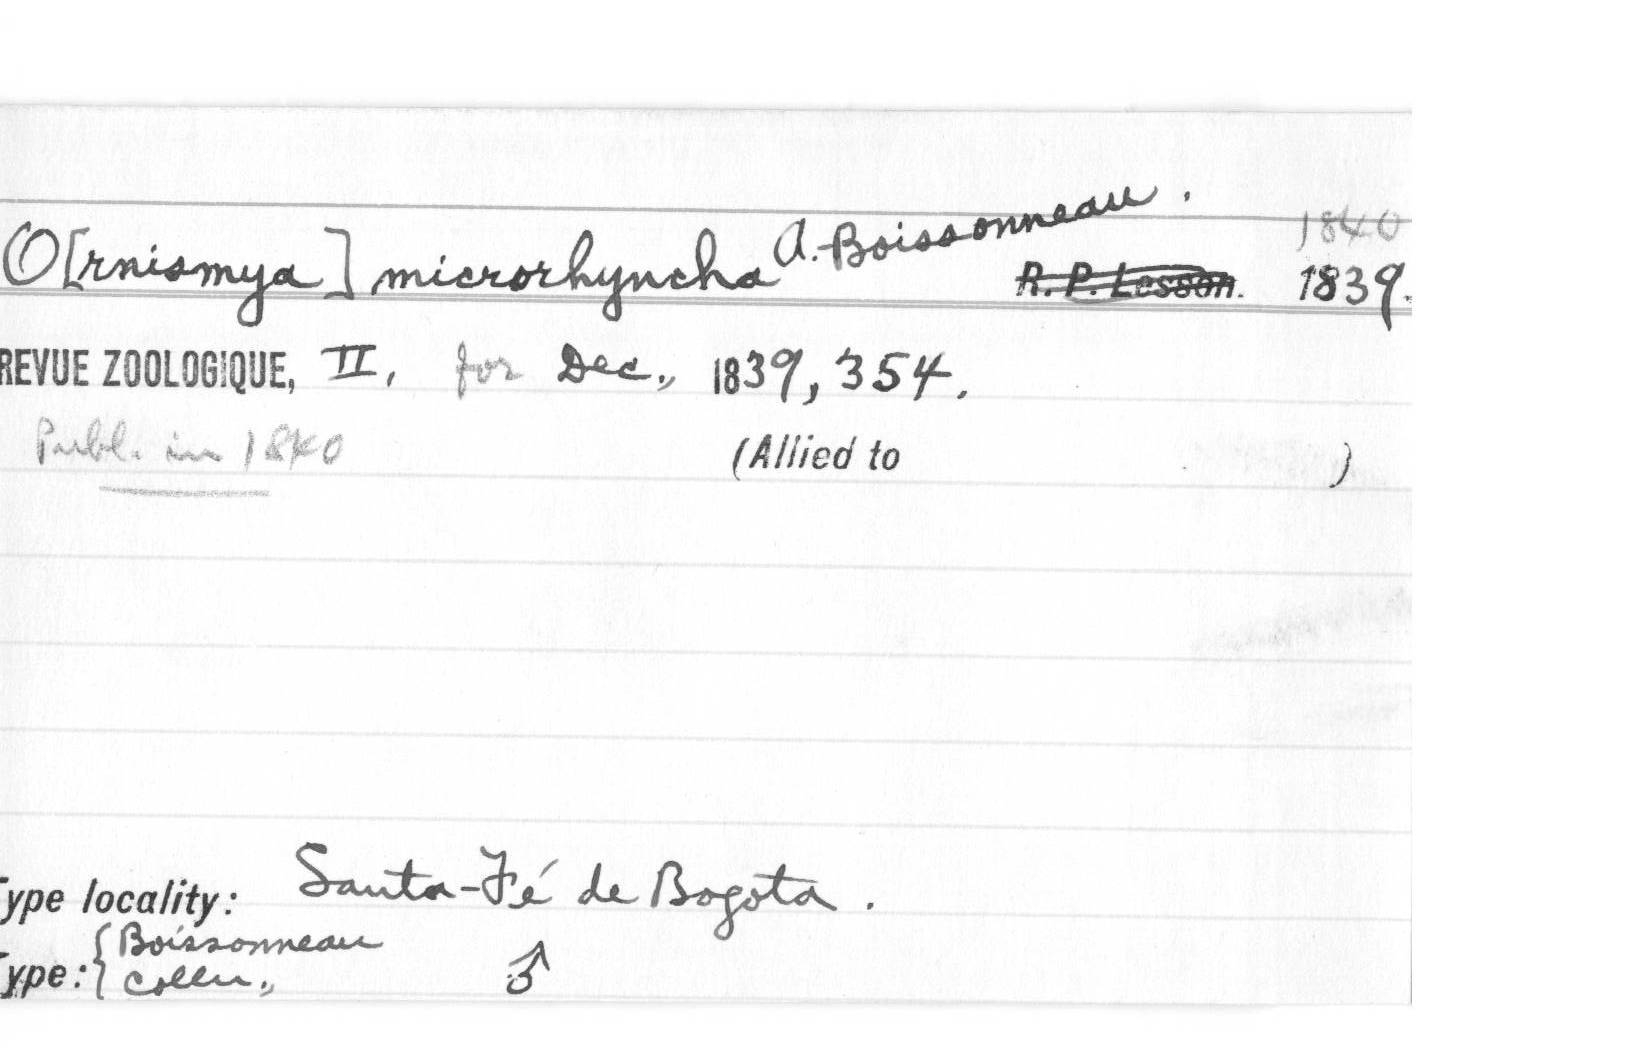 O[rnismya] microrhyncha A. Boissonneau. 1840
R. P. Lesson. 1839.
REVUE ZOOLOGIQUE, II, for Dec., 1839, 354.
Publ. in 1840 (Allied to )
Type locality: Santa-Fé de Bogota.
Type: { Boissonneau
Colln., ♂